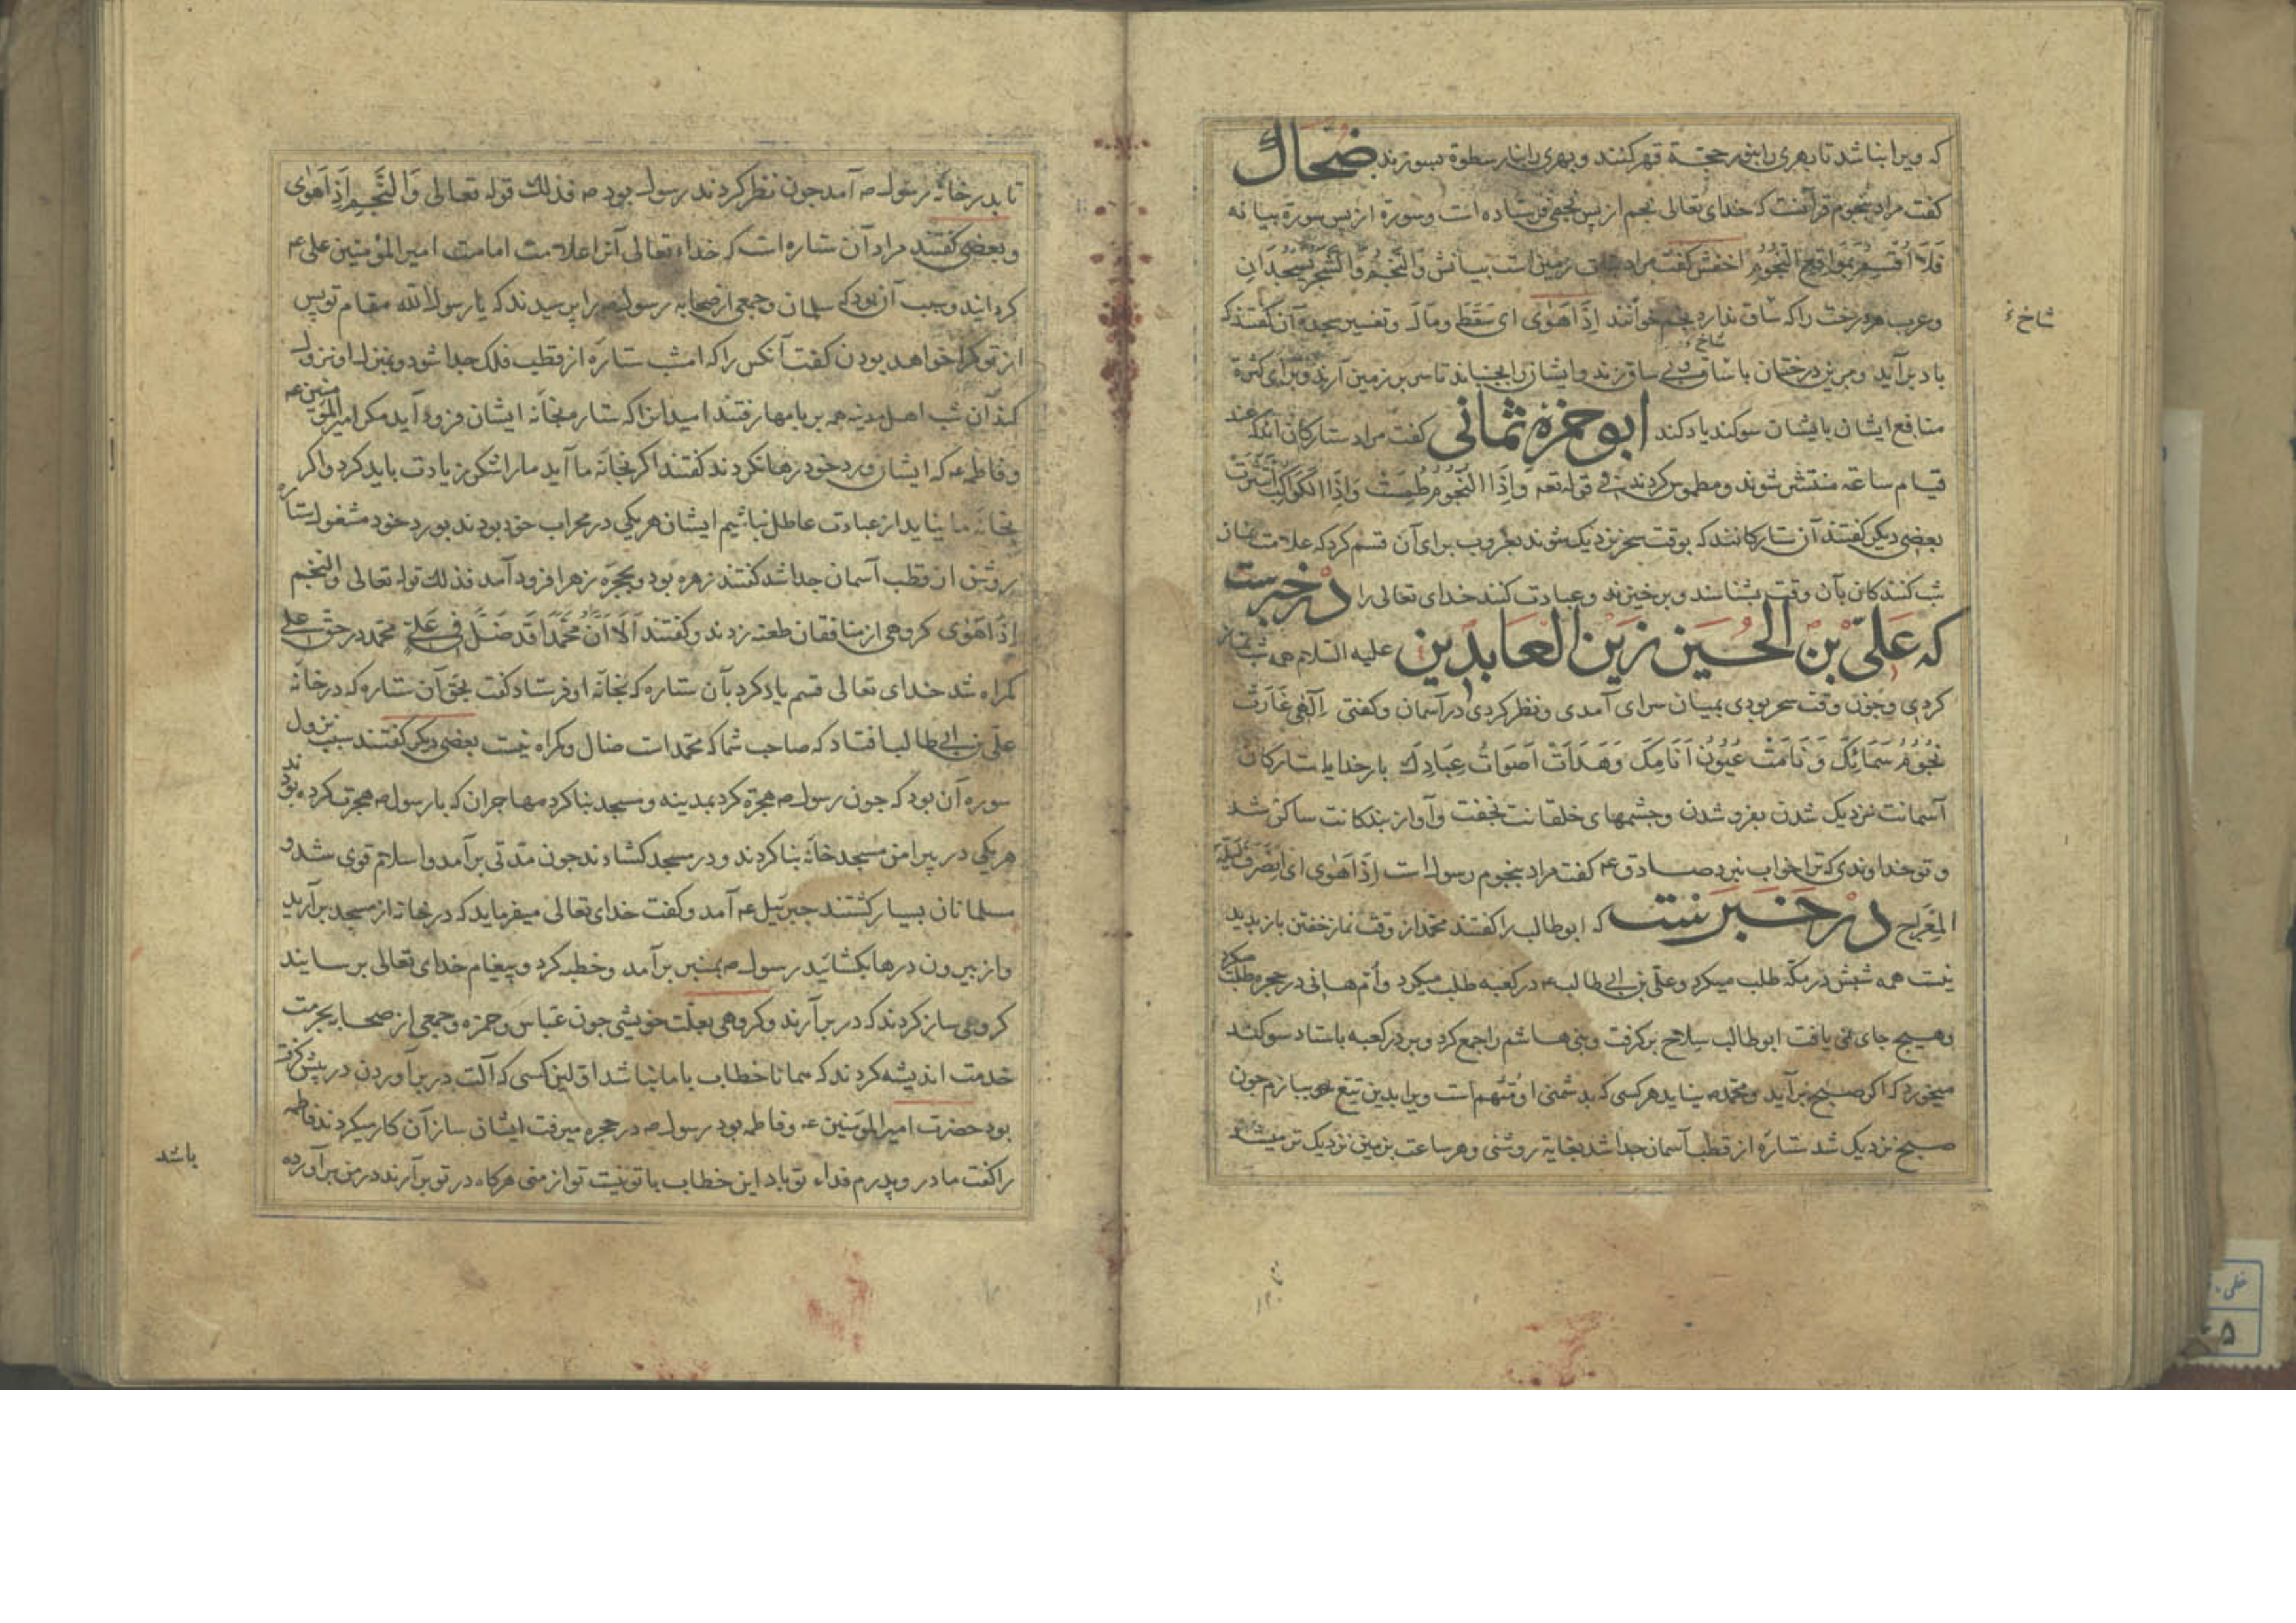 که ویرا بنا شد تا بهری را بنور حجة قهر کنند و بهری را بنار سطوة بسوزند ضحاك
کفت مراد بنجوم قرآنست که خدای تعالی نجم از پس نجمی فرستاده است وسورة از پس سورة بیانه
فَلَا اُقْسِمُ بِمَوَاقِعِ النُّجُومِ اخفش کفت مراد نبات زمین است بیانش وَالنَّجْمُ وَالشَّجَرُ یَسْجُدَانِ
وعرب هر درخت را که ساق ندارد نجم خوانند اِذَا هَوٰی ای سَقَطَ ومَالَ وتفسیر سجدۀ آن کفتند که
باد برآید و برین درختان با ساق و بی ساق زند و ایشان را بجنباند تا سر بر زمین آرند و برای کثرة
شاخ
منافع ایشان بایشان سوکند یاد کند ابو حمزة ثمالی کفت مراد ستارکان اند که عند
قیام ساعه منتشر شوند ومطموس کردند فی قوله تعه وَاِذَا النُّجُومُ طُمِسَتْ وَاِذَا الْکَوَاکِبُ انْتَثَرَتْ
بعضی دیکر کفتند آن ستارکانند که بوقت سحر نزدیک شوند بغروب برای آن قسم کرد که علامت نماز
شب کنندکان بآن وقت بشناسند و برخیزند و عبادت کنند خدای تعالی را درخبرست
که عَلیّ بن الحُسَین زَین العَابدین علیه السلام هر شب نماز
کردی و چون وقت سحر بودی بمیان سرای آمدی و نظر کردی در آسمان و کفتی اِلٰهی غَارَتْ
نُجُومُ سَمَائِكَ وَنَامَتْ عُیُونُ اَنَامِكَ وَهَدَأَتْ اَصْوَاتُ عِبَادِكَ بار خدایا ستارکان
آسمانت نزدیک شدن بفرو شدن وچشمهای خلقانت بخفت وآواز بندکانت ساکن شد
و تو خداوندی که ترا خواب نبرد صادق ع کفت مراد بنجوم رسول است اِذَا هَوٰی ای اِنْصَرَفَ لَیْلَةَ
المِعْرَاجِ درخبرست که ابوطالب را کفتند محمد از وقت نماز خفتن باز پدید
نیست همه شبش در مکّه طلب میکرد وعلی بن ابی طالب ع در کعبه طلب میکرد و اُم هانی در حجره طلب میکرد
وهیچ جای نمی یافت ابوطالب سِلاح برکرفت وبنی هاشم را جمع کرد و بر در کعبه باستاد سوکند
میخورد که اکر صبح برآید ومحمد ص نیاید هر کسی که بدشمنی او مُتَّهم است ویرا بدین تیغ بیازم چون
صبح نزدیک شد ستاره از قطب آسمان جدا شد بغایة روشنی و هر ساعت بزمین نزدیک تر میشد
شاخ
تا بدر خانۀ رسول ص آمد چون نظر کردند رسول بود ص فذلك قوله تعالی وَالنَّجْمِ اِذَا هَوٰی
و بعضی کفتند مراد آن ستاره است که خداء تعالی آنرا علامت امامت امیرالمؤمنین علی ع
کردانید وسبب آن بود که سلمان وجمعی از صحابه رسول ص را پرسیدند که یا رسول الله مقام تو پس
از تو کرا خواهد بودن کفت آنکس را که امشب ستاره از قطب فلک جدا شود و بمنزل او نزول
کند آن شب اهل مدینه همه بر بامها رفتند امید انرا که ستاره بخانه ایشان فرود آید مکر امیرالمؤمنین ع
و فاطمه ع که ایشان ورد خود رها نکردند کفتند اکر بخانۀ ما آید ما را شکر زیادت باید کرد و اکر
بخانۀ ما نیاید از عبادت عاطل نباشیم ایشان هر یکی در محراب خود بودند بورد خود مشغول ستاره
روشن از قطب آسمان جدا شد کفتند زهره بود و بحجره زهرا فرود آمد فذلك قوله تعالی والنجم
اِذَا هَوٰی کروهی از منافقان طعنه زدند و کفتند اَلَا اَنَّ مُحَمَّدًا قَد ضَلَّ فِی عَلیٍّ محمد در حق علی
کمراه شد خدای تعالی قسم یاد کرد بآن ستاره که بخانۀ او فرستاد کفت بحق آن ستاره که در خانۀ
علی بن ابی طالب افتاد که صاحب شما که محمد است ضال و کمراه نیست بعضی دیکر کفتند سبب نزول
سوره آن بود که چون رسول ص هجرة کرد بمدینه و مسجد بنا کرد مهاجران که با رسول ص هجرت کرده بودند
هر یکی در پیرامن مسجد خانۀ بنا کردند و در مسجد کشادند چون مدتی برآمد و اسلام قوی شد و
مسلمانان بسیار کشتند جبرئیل ع آمد و کفت خدای تعالی میفرماید که در خانه از مسجد برآرید
و از بیرون درها بکشائید رسول ص بمنبر برآمد و خطبه کرد و پیغام خدای تعالی برسانید
کروهی ساز کردند که در برآرند و کروهی بعلت خویشی چون عباس و حمزه و جمعی از صحابه بحرمت
خدمت اندیشه کردند که همانا خطاب با ما نباشد اولین کسی که آلت در برآوردن در پیش کرفت
بود حضرت امیرالمؤمنین ع و فاطمه بود رسول ص در حجره میرفت ایشان ساز آن کار میکردند فاطمه
را کفت مادر و پدرم فداء تو باد این خطاب با تو نیست تو از منی هرکاه در تو برآرند در من برآورده
باشد